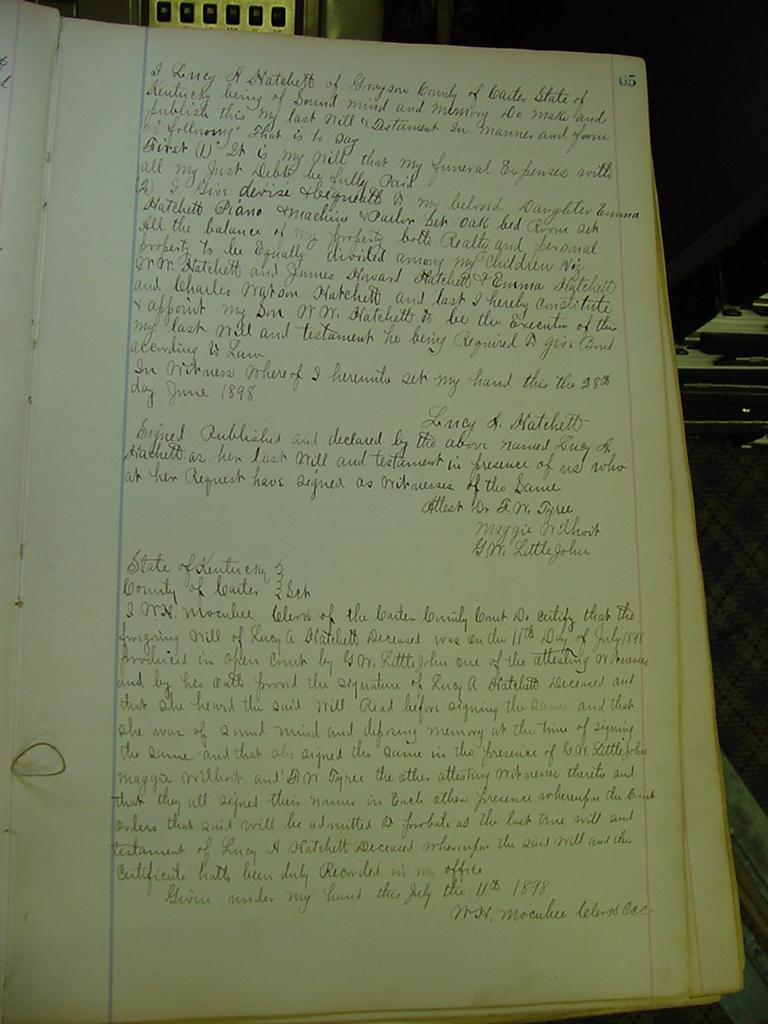 65
I Lucy A Hatchett of Grayson County of Carter State of
Kentucky being of Sound mind and memory Do make and
publish this my last Will & Testament In manner and form
as following That is to Say
First (1) It is my Will that my funeral Expenses with
all my Just Debts be fully Paid
(2) I Give devise & bequeath to my beloved Daughter Emma
Hatchett Piano & machine & Parlor Set Oak bed Room set
All the balance of my property both Realty and personal
property to be Equally divided among my Children Viz
W.W. Hatchett and James Howard Hatchett & Emma Hatchett
and Charles Watson Hatchett and last I hereby Constitute
& appoint my Son W W. Hatchett to be the Executor of this
my last Will and testament he being Required to give Bond
according to Law
In Witness Whereof I hereunto set my hand this the 28th
day June 1898
Lucy A. Hatchett
Signed Published and declared by the above named Lucy A.
Hatchett as her last Will and testament in presence of us who
at her Request have signed as Witnesses of the Same
Attest Dr F. W. Tyree
Maggie Wilhoit
G.W. LittleJohn
State of Kentucky }
County of Carter } Sct
I W.H. Mocabee Clerk of the Carter County Court Do certify that the
foregoing Will of Lucy A Hatchett Deceased was on the 11th Day of July 1898
produced in Open Court by G W. LittleJohn one of the attesting Witnesses
and by his oath proved the signature of Lucy A Hatchett Deceased and
that she heard the said Will Read before signing the same and that
she was of sound mind and disposing memory at the time of signing
the same and that she signed the same in the presence of G W. LittleJohn
Maggie Wilhoit and F W Tyree the other attesting Witnesses thereto and
that they all signed their names in Each others presence wherefore the Court
orders that said will be admitted to probate as the last true will and
testament of Lucy A Hatchett Deceased wherefore the said Will and this
Certificate hath been duly Recorded in my office
Given under my hand this July the 11th 1898
W.H. Mocabee Clerk CCC